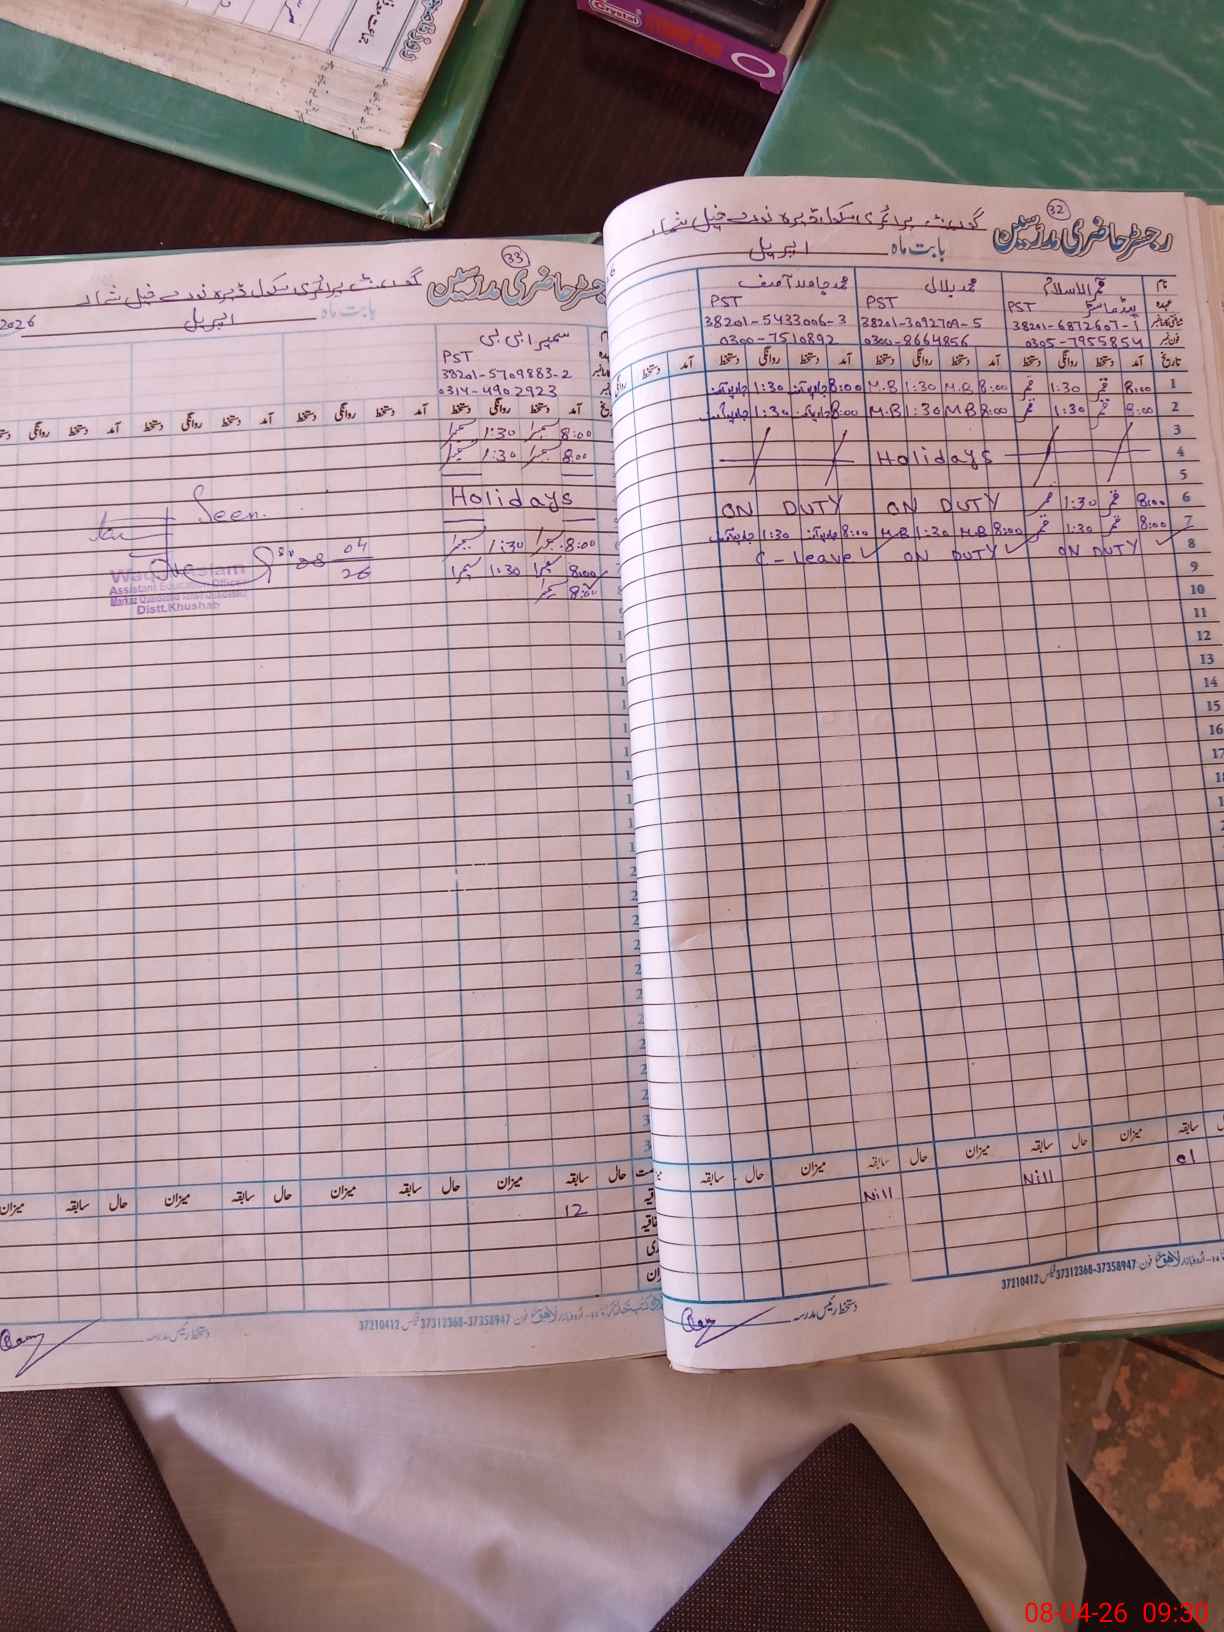 32
رجسٹر حاضری مدرسین
گورنمنٹ پرائمری سکول ڈیرہ نور خیل شمالی
بابت ماہ اپریل
نام قمر الاسلام محمد بلال محمد جامد آصف
عہدہ ہیڈ ماسٹر PST PST PST
38201-6872607-1 38201-3092709-5 38201-5433006-3
فون نمبر 0305-7955854 0300-8664856 0300-7510892
تاریخ آمد دستخط روانگی دستخط آمد دستخط روانگی دستخط آمد دستخط روانگی دستخط آمد دستخط
1 8:00 قمر 1:30 قمر 8:00 M.B 1:30 M.B 8:00 1:30
2 8:00 قمر 1:30 قمر 8:00 M.B 1:30 M.B 8:00 1:30
3
4 Holidays
5
6 8:00 قمر 1:30 قمر ON DUTY ON DUTY
7 8:00 قمر 1:30 قمر 8:00 M.B 1:30 M.B 8:00 1:30
8 ON DUTY ON DUTY C-Leave
9
10
11
12
13
14
15
16
17
سابقہ میزان حال سابقہ میزان حال سابقہ میزان حال سابقہ
01 Nill Nill
فون 37312368-37358947 فیکس 37210412
دستخط رئیس مدرسہ
33
رجسٹر حاضری مدرسین
گورنمنٹ پرائمری سکول ڈیرہ نور خیل شمالی
بابت ماہ اپریل 2026
سمیرا بی بی
PST
38201-5709883-2
0314-4902923
آمد دستخط روانگی دستخط آمد دستخط روانگی دستخط آمد دستخط روانگی دستخط
8:00 سمیرا 1:30 سمیرا
8:00 سمیرا 1:30 سمیرا
Holidays
8:00 سمیرا 1:30 سمیرا
8:00 سمیرا 1:30 سمیرا
8:00 سمیرا
Seen.
08 04
26
Assistant Education Officer
Distt. Khushab
حال سابقہ میزان حال سابقہ میزان حال سابقہ میزان حال سابقہ میزان
12
فون 37312368-37358947 فیکس 37210412
دستخط رئیس مدرسہ
08-04-26 09:30